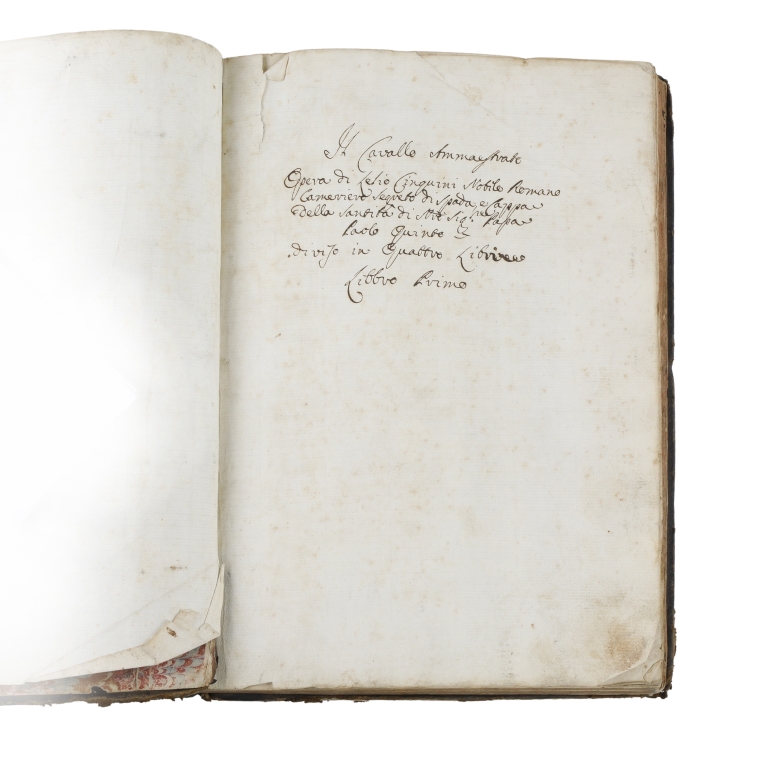 Il Cavallo Ammaestrato
Opera di Lelio Cinquini Nobile Romano
Cameriere Segreto di Spada, e Cappa
Della Santità di Nro Sig.re Papa
Paolo Quinto
diviso in Quattro Libri
Libbro Primo